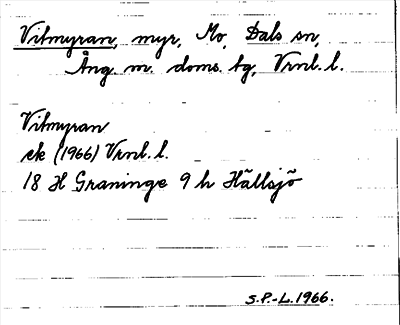 Vitmyran, myr, Mo, Dals sn,
Ång. m. doms. tg, Vrnl. l.
Vitmyran
ek (1966) Vrnl. l.
18 H Graninge 9 h Hällsjö
S.P.-L. 1966.